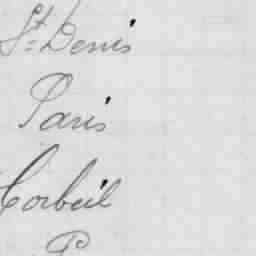 St Denis
Paris
Corbeil
P